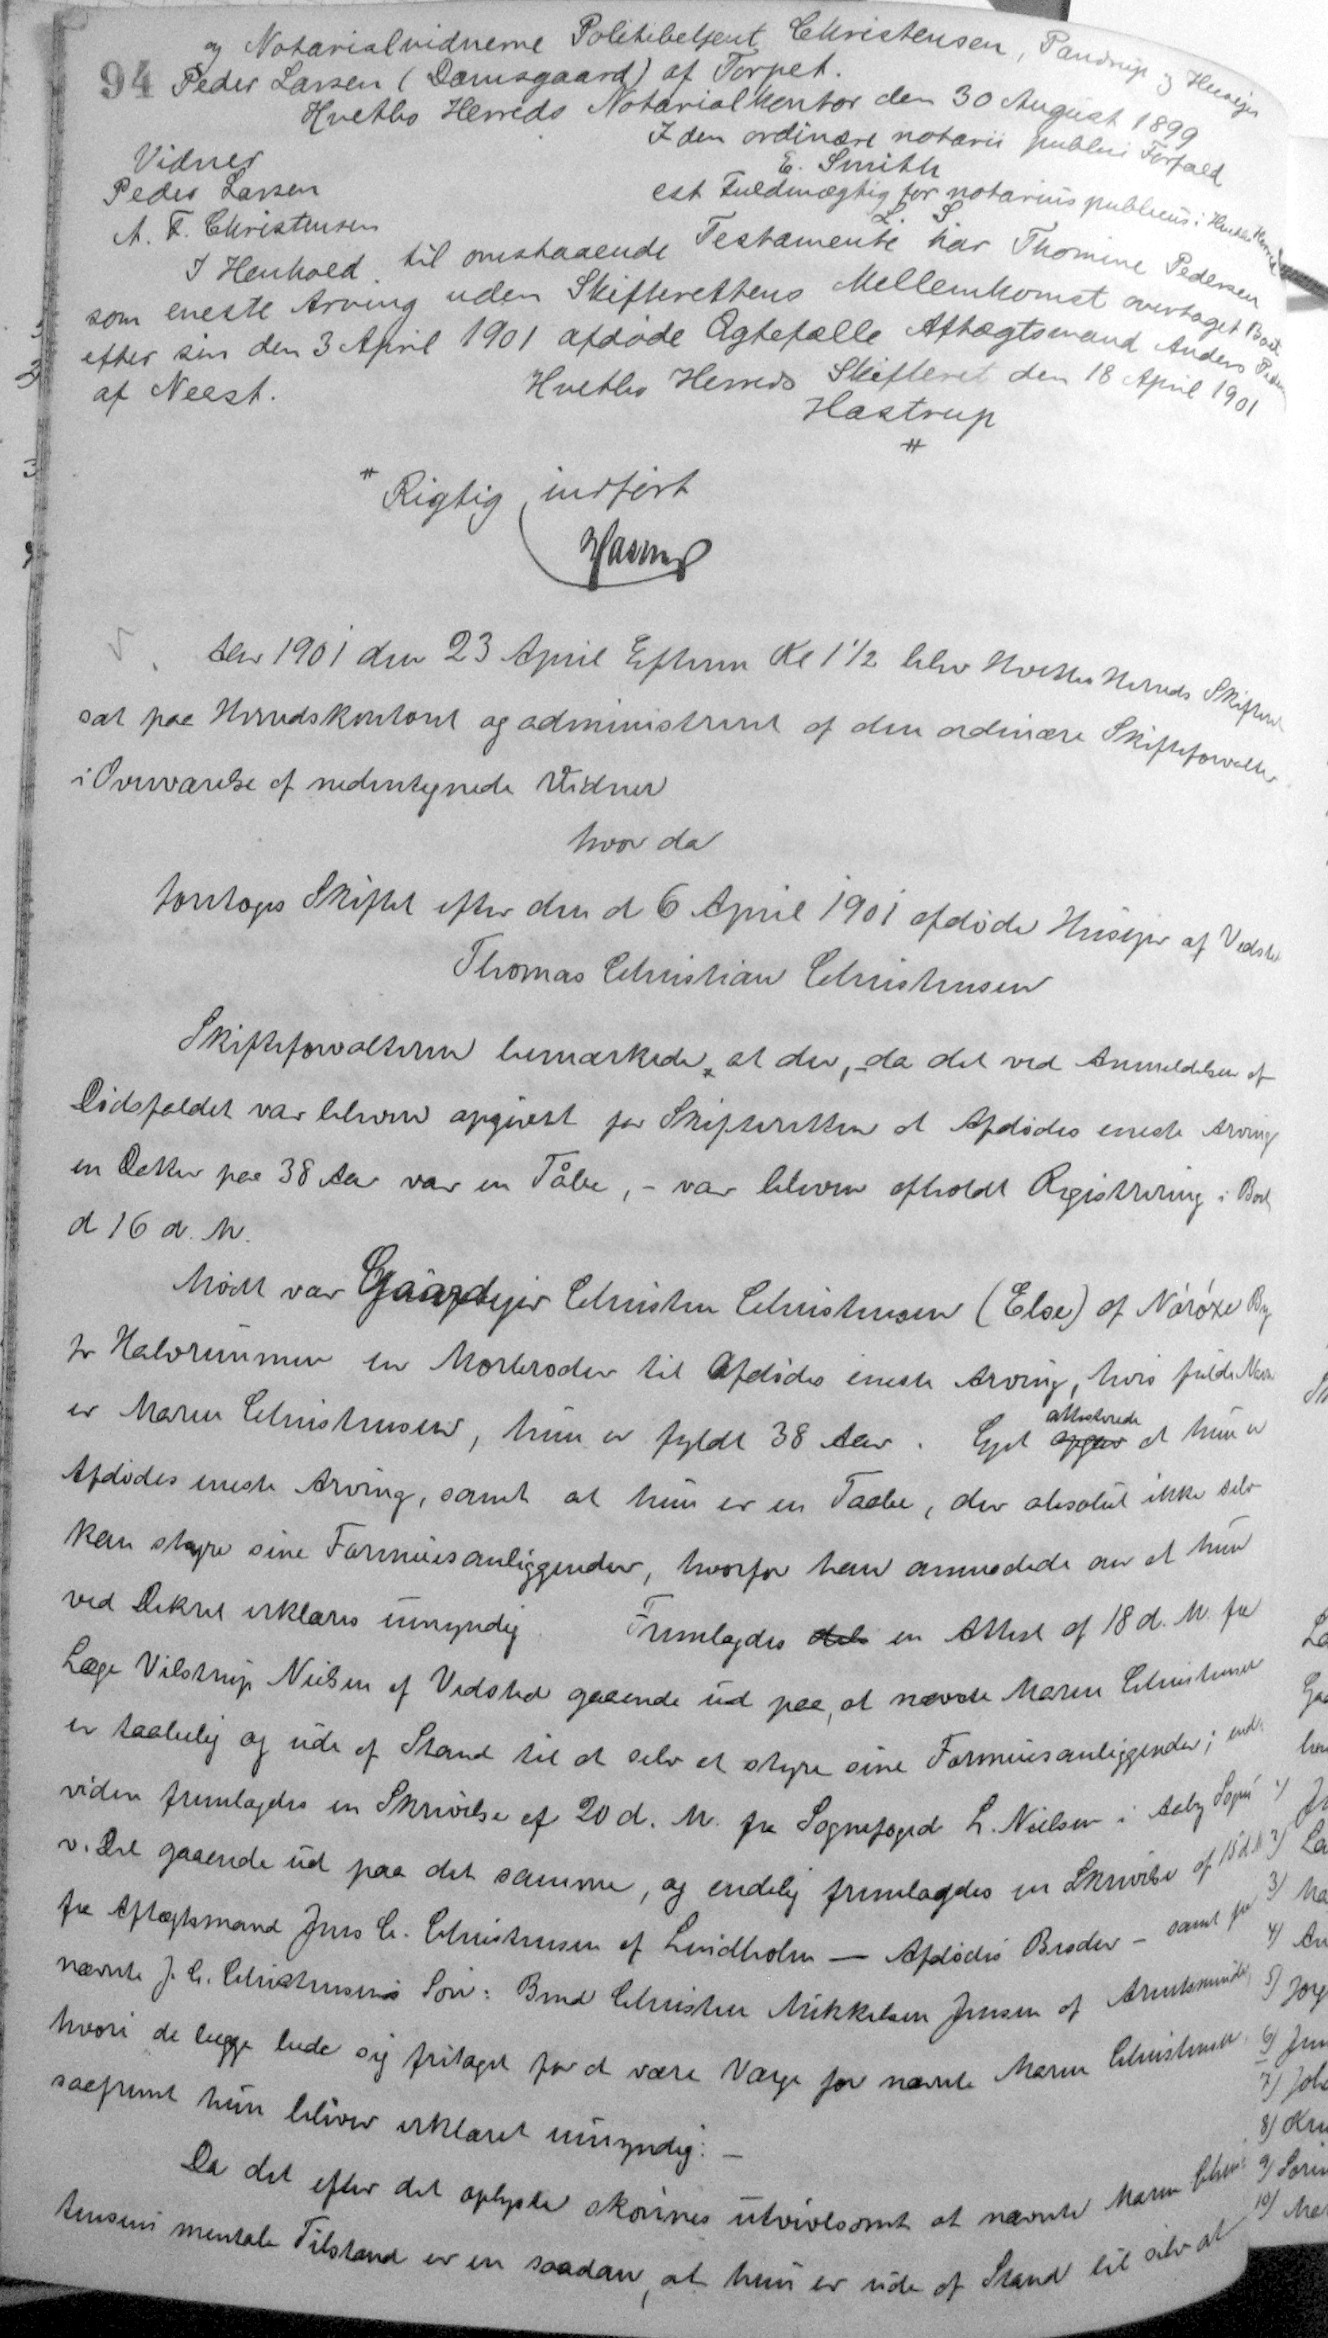 94
og Notarialvidnerne Politibetjent Christensen, Pandrup og Husejer
Peder Larsen (Damsgaard) af Torpet.
Hvetbo Herreds Notarialkontor den 30 August 1899
I den ordinære notarii publici Forfald
E. Smith
cst Fuldmægtig for notarius publicus i Hvetbo Herred
L. S.
Vidner
Peder Larsen
A. F. Christensen
I Henhold til omstaaende Testamente har Thomine Pedersen
som eneste Arving uden Skifterettens Mellemkomst overtaget Boet
efter sin den 3 April 1901 afdøde Ægtefælle Aftægtsmand Anders Peder
af Neest.
Hvetbo Herreds Skifteret den 18 April 1901
Hastrup
#
# Rigtig indført
Aar 1901 den 23 April Efterm Kl 1 1/2 blev Hvetbo Herreds Skifteret
sat paa Herredskontoret og administreret af den ordinære Skifteforvalter
i Overværelse af nedentegnede Vidner
hvor da
foretoges Skiftet efter den d 6 April 1901 afdøde Husejer af Vedsted
Thomas Christian Christensen
Skifteforvalteren bemærkede, at der, - da det ved Anmeldelsen af
Dødsfaldet var bleven opgivet for Skifteretten at Afdødes eneste Arving
en Datter paa 38 Aar var en Tåbe, - var bleven afholdt Registrering i Boet
d 16 d. M.
Mødt var Gaardejer Christen Christensen (Else) af Nørøxe By
pr Halvrimmen en Morbroder til Afdødes eneste Arving, hvis fulde Navn
er Maren Christensen, hun er fyldt 38 Aar. Cpt opgav attesterede at hun er
Afdødes eneste Arving, samt at hun er en Taabe, der absolut ikke selv
kan styre sine Formuesanliggender, hvorfor han anmodede om at hun
ved Dekret erklæres umyndig. Fremlagdes dels en Attest af 18 d. M. fra
Læge Vilstrup Nielsen af Vedsted gaaende ud paa, at nævnte Maren Christensen
er taabelig og ude af Stand til at selv at styre sine Formuesanliggender; end
viden fremlagdes en Skrivelse af 20 d. M. fra Sognefoged L. Nielsen i Aaby Sogn
v. Del gaaende ud paa det samme, og endelig fremlagdes en Skrivelse af 15 d. M
fra Aftægtsmand Jens C. Christensen af Lindholm — Afdødes Broder - samt fra
nævnte J. C. Christensens Søn: Bmd Christen Mikkelsen Jensen af
hvori de begge bede sig fritaget for at være Værge for nævnte Maren Christensen
saafremt hun bliver erklæret umyndig. —
Da det efter det oplyste skønnes utvivlsomt at nævnte Maren Chris
tensens mentale Tilstand er en saadan, at hun er ude af Stand til selv at
1/
2/
3/
4/
5/
6/
7/
8/
9/
10/